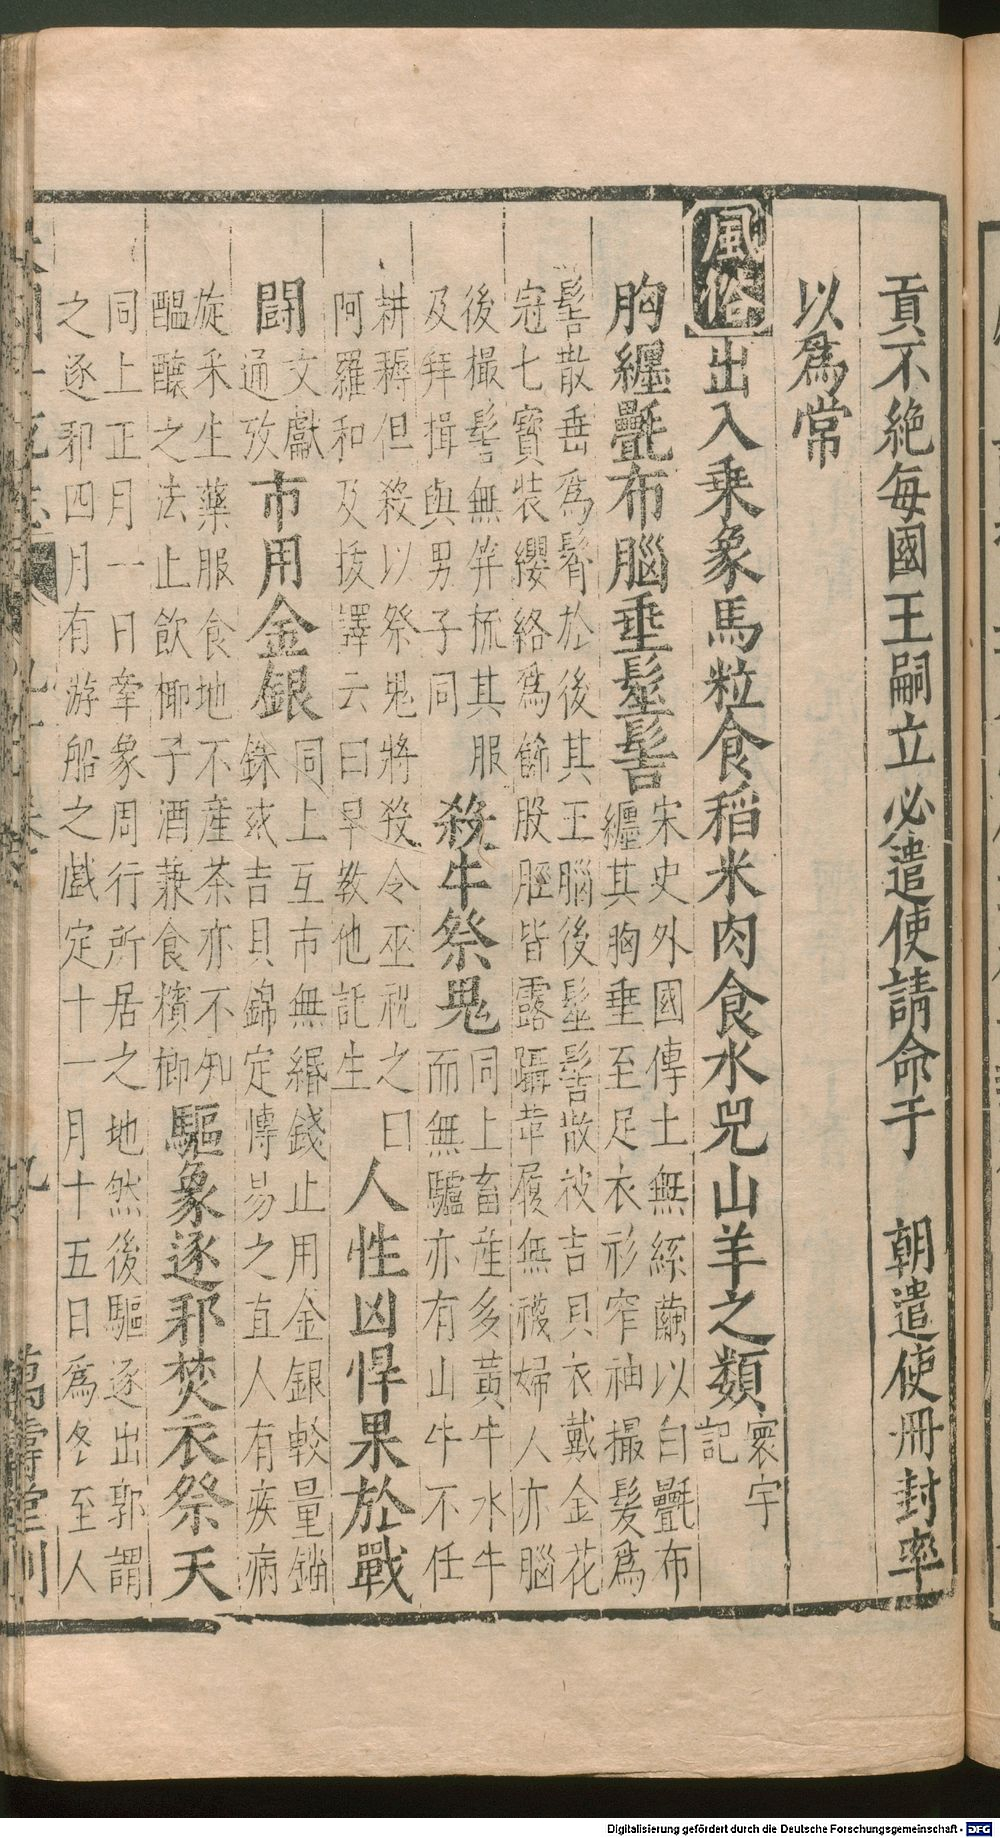 貢不絶每國王嗣立必遣使請命于　朝遣使冊封率
以爲常
風俗
出入乗象馬粒食稻米肉食水兕山羊之類
寰宇
記
胸纏㲲布腦垂髽髻
宋史外國傳土無絲繭以白㲲布
纏其胸垂至足衣衫窄袖撮髮爲
髻散垂爲髾於後其王腦後髽髻散被吉貝衣戴金花
冠七寳装纓絡爲餙股脛皆露躡韋履無襪婦人亦腦
後撮髻無笄梳其服
及拜揖與男子同
殺牛祭鬼
同上畜産多黄牛水牛
而無驢亦有山牛不任
耕耨但殺以祭鬼將殺令巫祝之曰
阿羅和及㧞譯云曰早教他託生
人性凶悍果於戰
闘
文獻
通攷
市用金銀
同上互市無緡錢止用金銀較量錙
銖或吉貝錦定慱易之直人有疾病
旋采生藥服食地不産茶亦不知
醖釀之法止飲椰子酒兼食檳榔
驅象逐邪焚衣祭天
同上正月一日牽象周行所居之地然後驅逐出郭謂
之逐邪四月有游船之戲定十一月十五日爲冬至人
萬壽堂刊
Digitalisierung gefördert durch die Deutsche Forschungsgemeinschaft - DFG